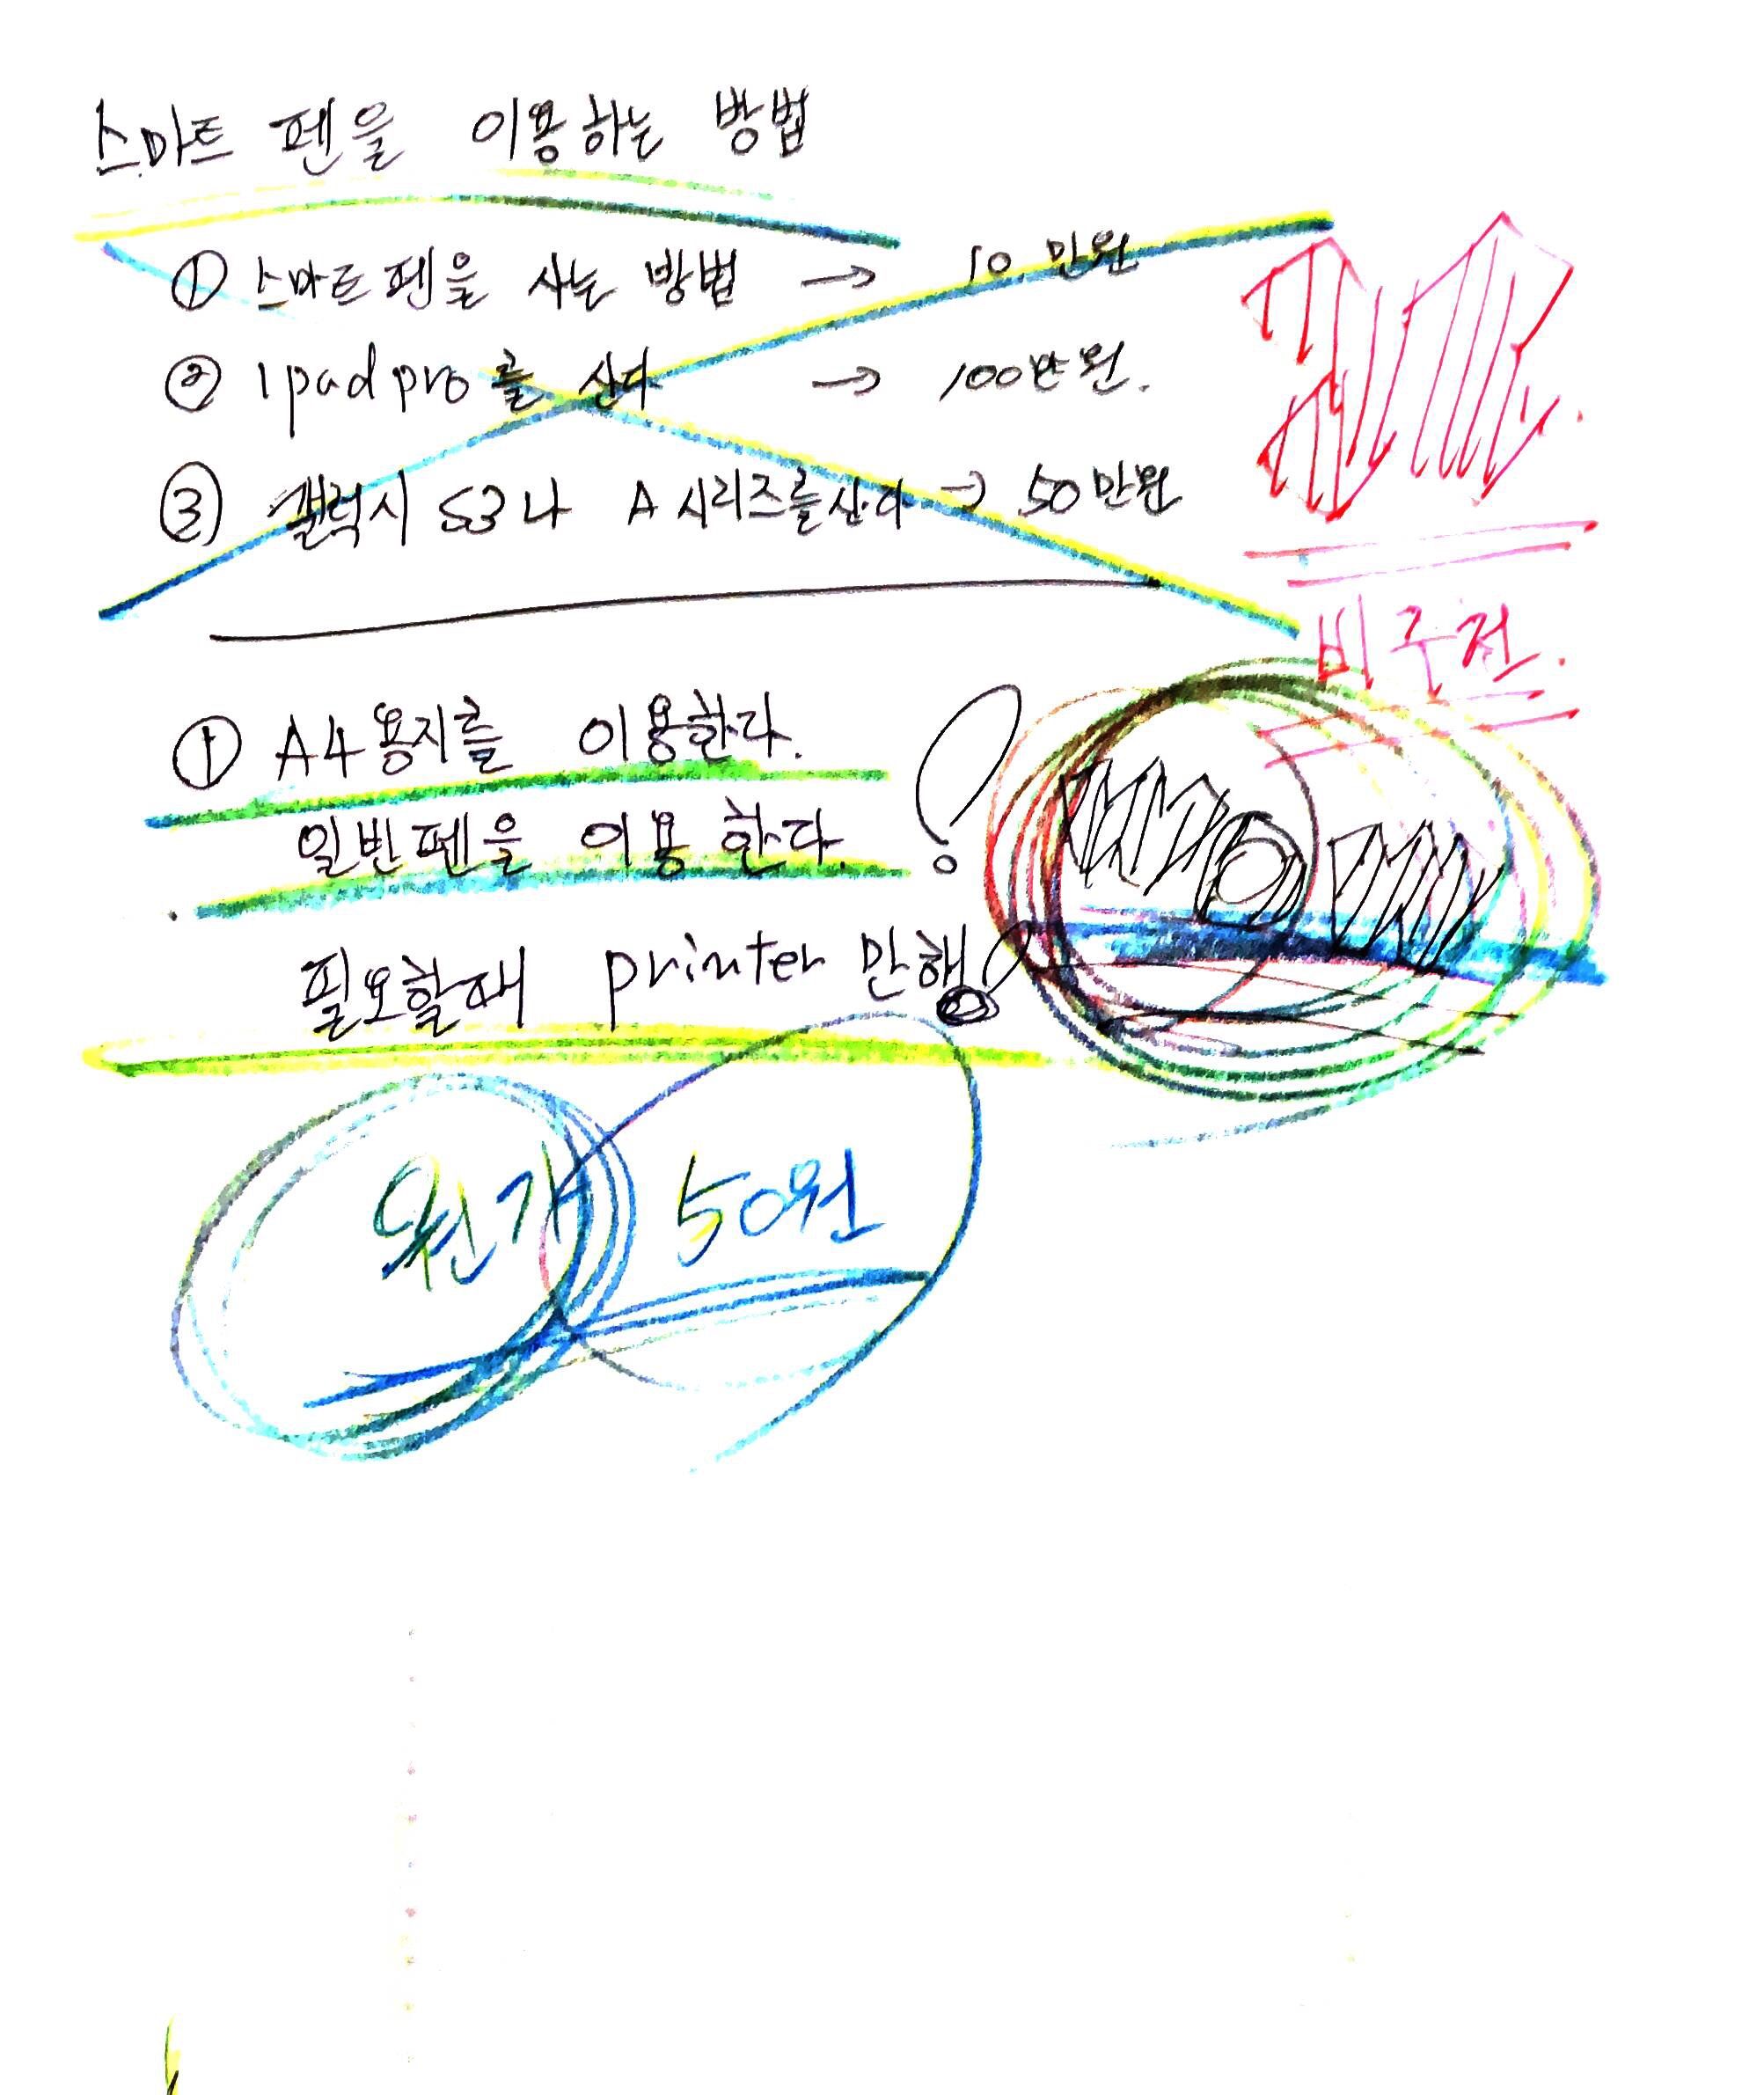 스마트 펜을 이용하는 방법
① 스마트펜을 사는 방법 → 10만원
② Ipad pro를 산다 → 100만원.
③ 갤럭시 S3나 A시리즈를산다 → 50만원
① A4용지를 이용한다.
일반펜을 이용한다.
필요할때 printer 만해
원가 50원